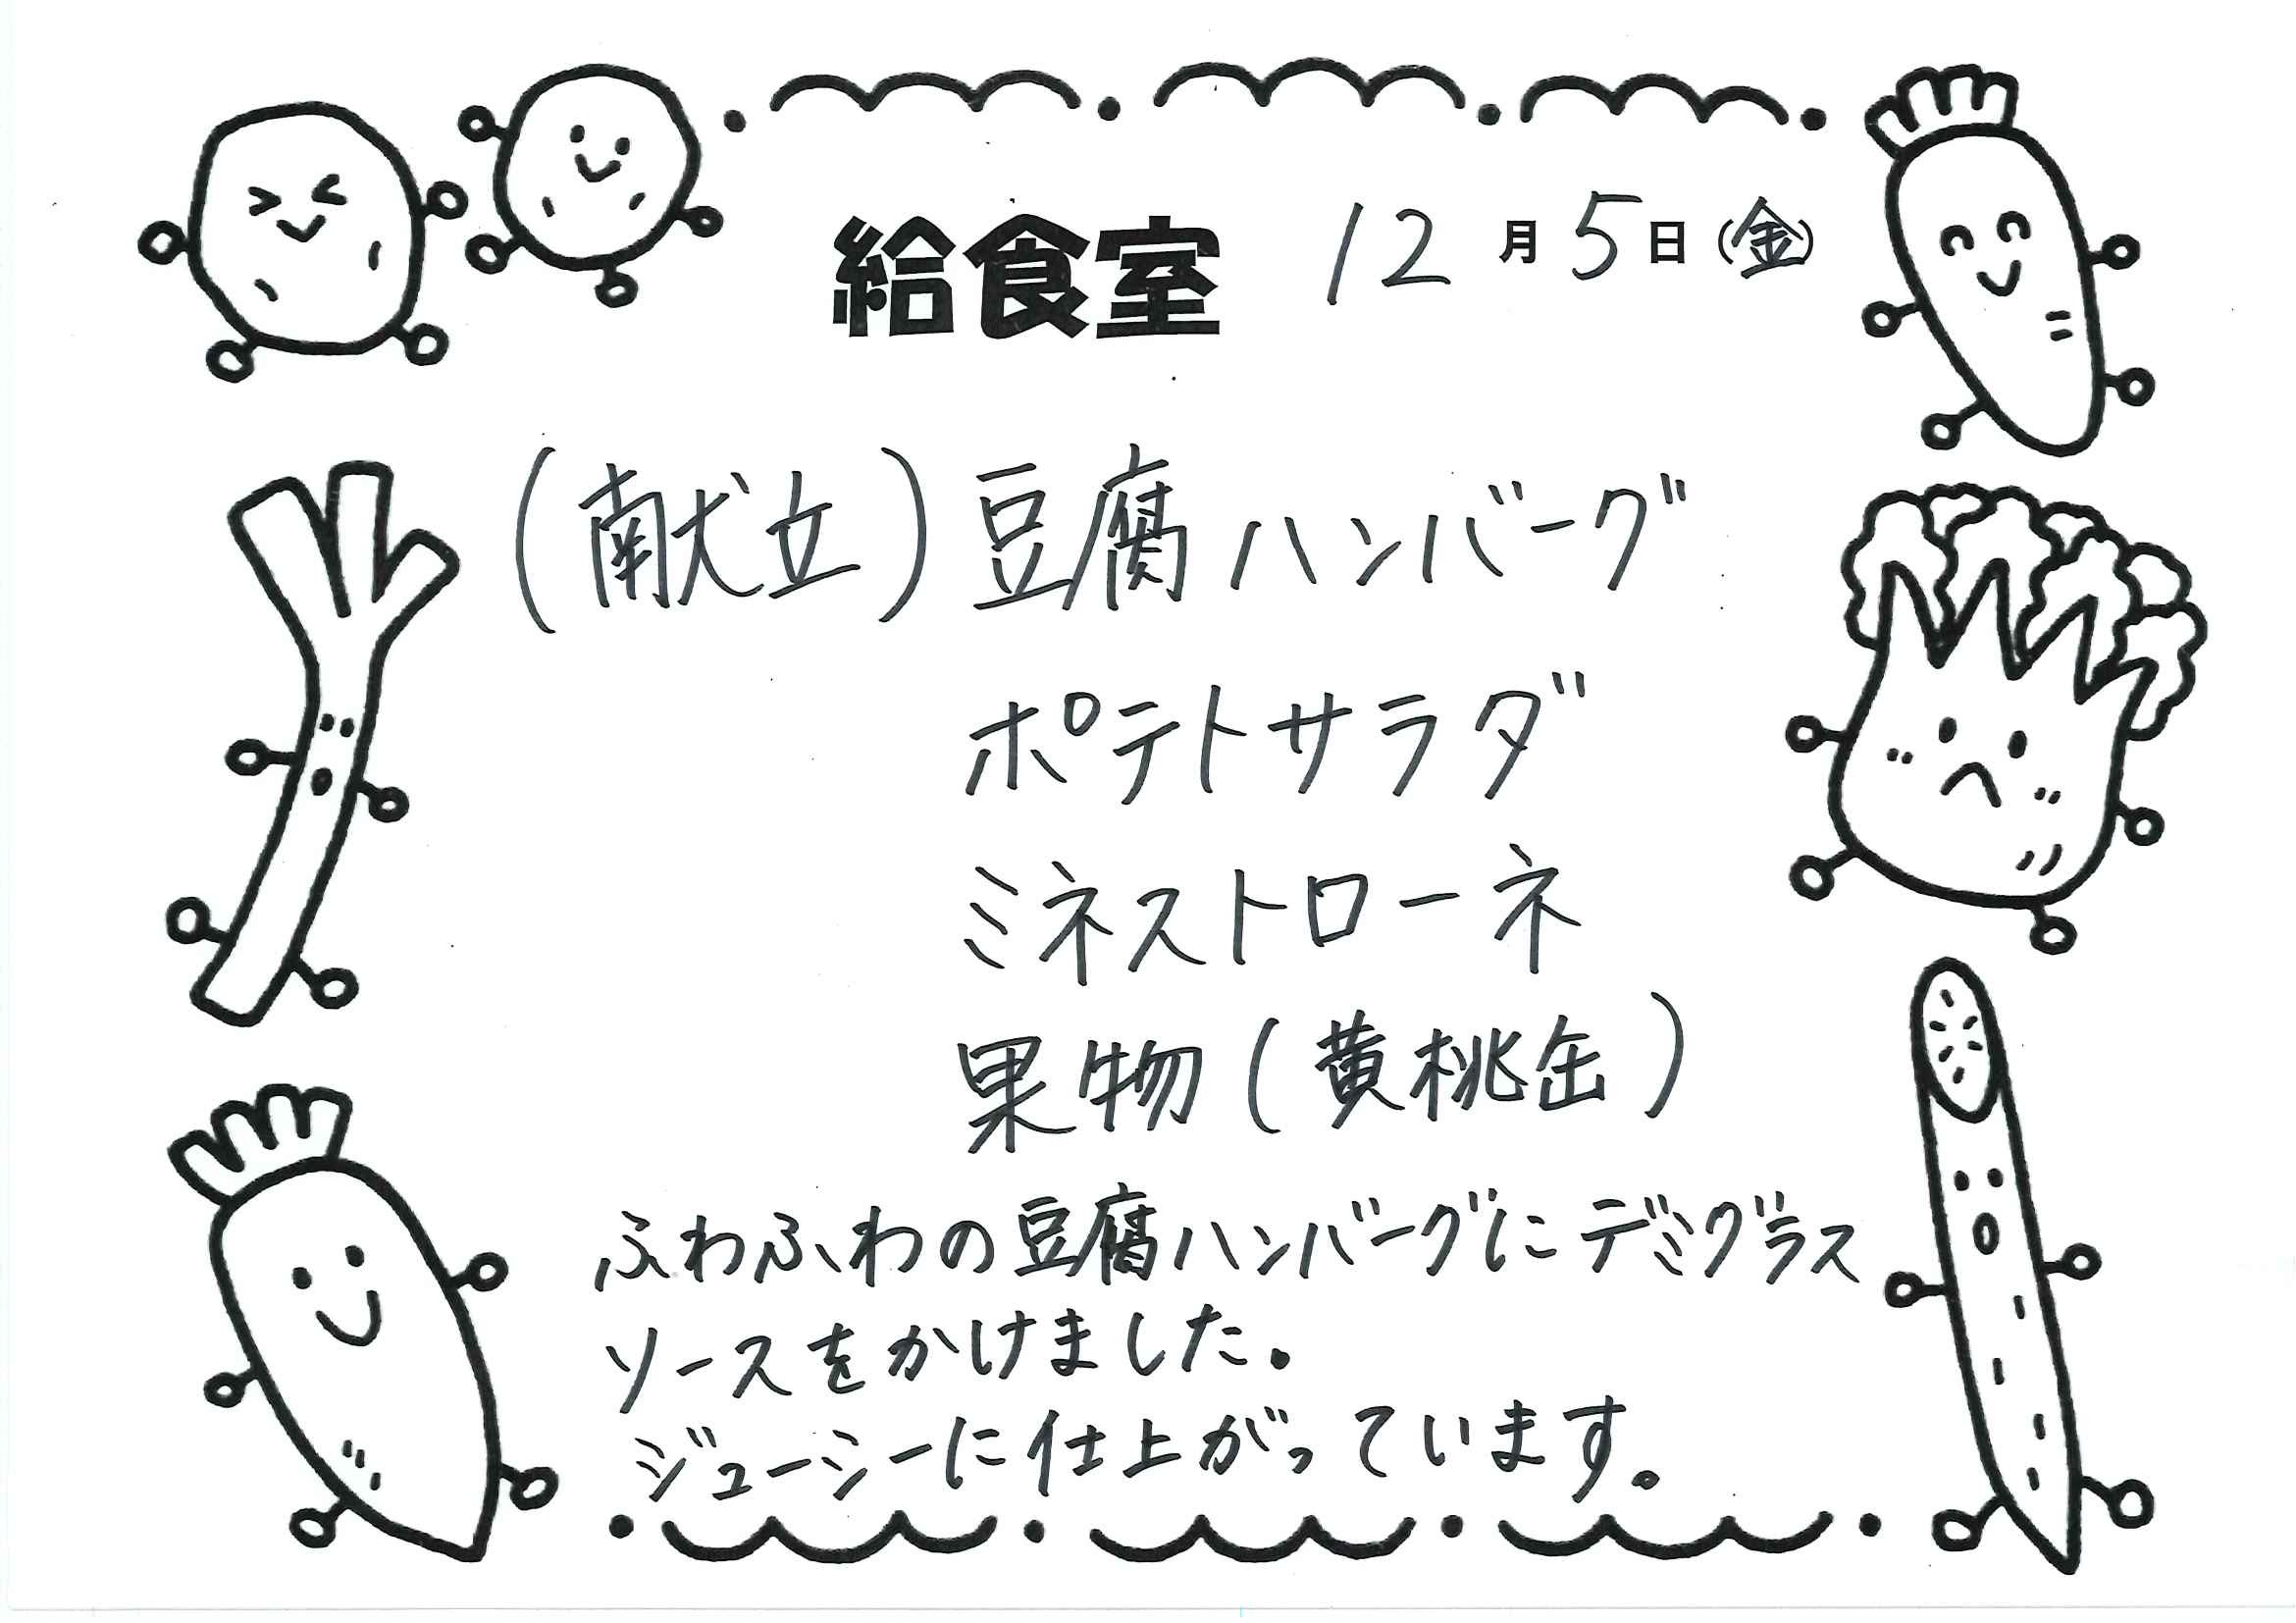 給食室 12月5日(金)
(献立)豆腐ハンバーグ
ポテトサラダ
ミネストローネ
果物(黄桃缶)
ふわふわの豆腐ハンバーグにデミグラス
ソースをかけました。
ジューシーに仕上がっています。